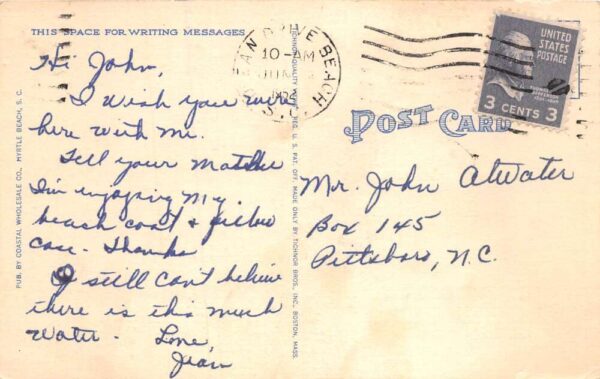 THIS SPACE FOR WRITING MESSAGES
Hi John,
I wish you were
here with me.
Tell your Mother
I'm enjoying my
beach coat & pillow
case. Thanks
I still can't believe
there is this much
water. Love,
Jean
PUB. BY COASTAL WHOLESALE CO., MYRTLE BEACH, S. C.
"TICHNOR QUALITY VIEWS," REG. U. S. PAT. OFF. MADE ONLY BY TICHNOR BROS., INC., BOSTON, MASS.
OCEAN DRIVE BEACH
10-AM
JUN
S.C.
UNITED
STATES
POSTAGE
3 CENTS 3
POST CARD
Mr. John Atwater
Box 145
Pittsboro, N.C.